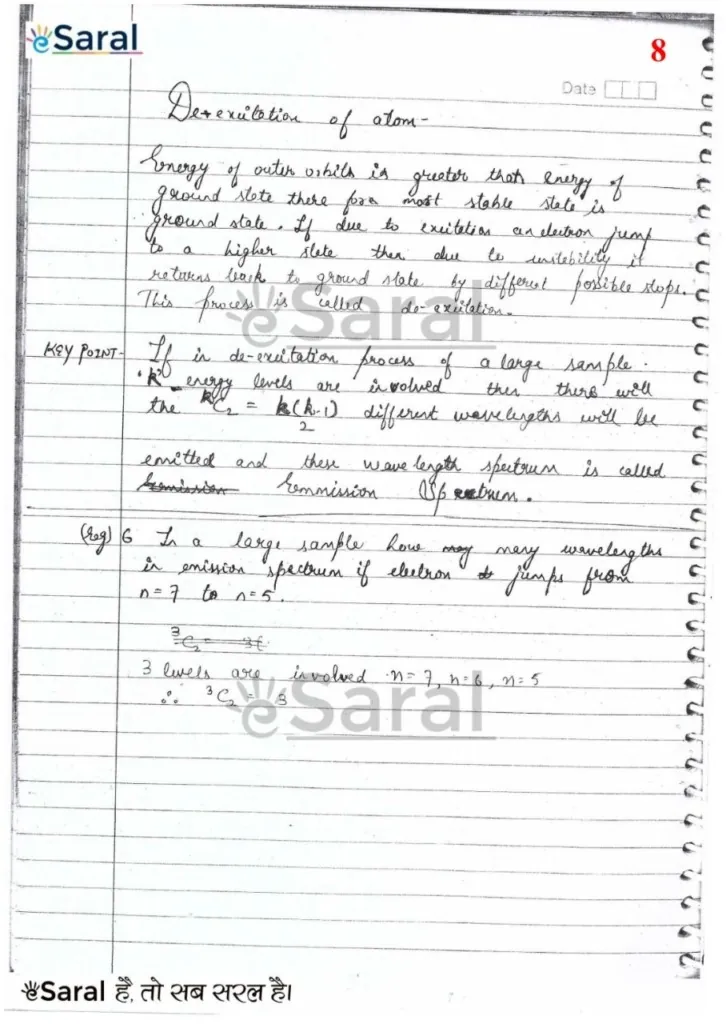 eSaral
8
Date
De-excitation of atom-
Energy of outer orbits is greater than energy of
ground state there for most stable state is
ground state. If due to excitation an electron jump
to a higher state then due to unstability it
returns back to ground state by different possible stops.
This process is called de-excitation.
eSaral
KEY POINT- If in de-excitation process of a large sample.
'k' energy levels are involved then there will
the ᵏC₂ = k(k-1)/2 different wavelengths will be
emitted and these wavelength spectrum is called
Emission Emmission Spectrum.
(Eg) 6 In a large sample how may many wavelengths
in emission spectrum if electron jumps from
n=7 to n=5.
³C₂ =
3 levels are involved n=7, n=6, n=5
∴ ³C₂ = 3
eSaral
eSaral है, तो सब सरल है।